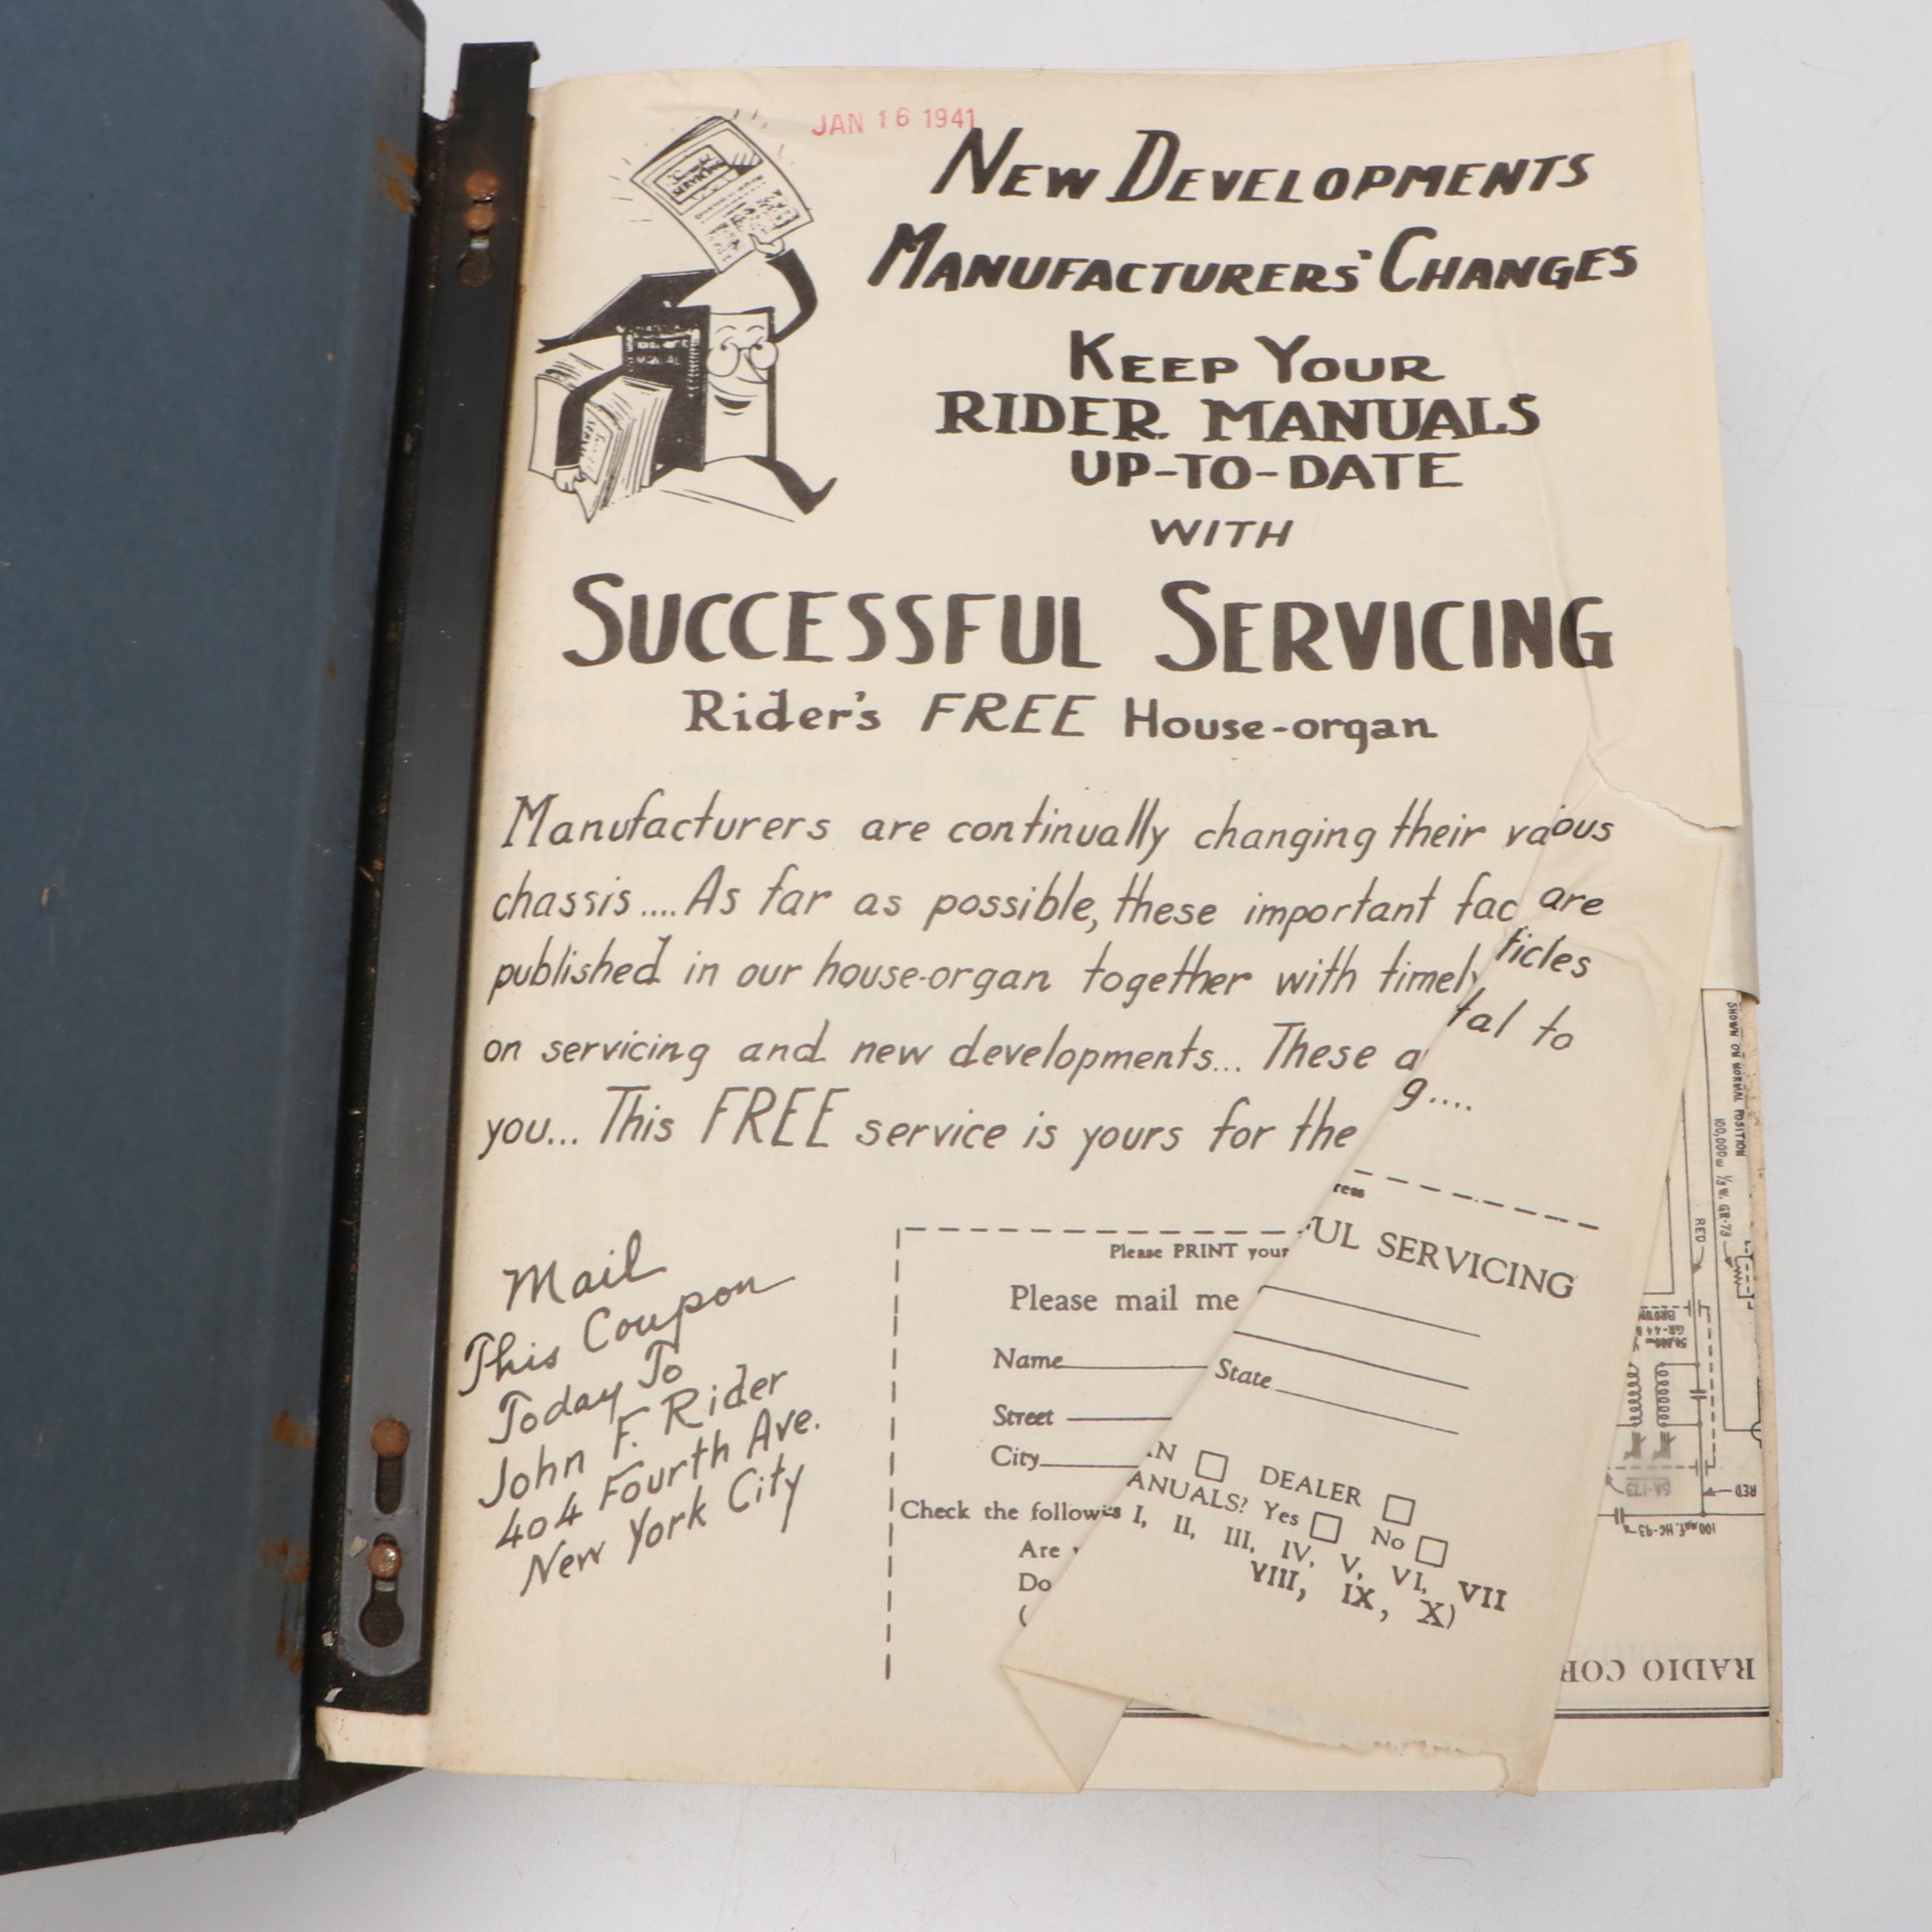 JAN 16 1941
NEW DEVELOPMENTS
MANUFACTURERS' CHANGES
KEEP YOUR
RIDER MANUALS
UP-TO-DATE
WITH
SUCCESSFUL SERVICING
Rider's FREE House-organ
Manufacturers are continually changing their va ious
chassis.... As far as possible, these important fac are
published in our house-organ together with timely ticles
on servicing and new developments... These a tal to
you... This FREE service is yours for the g....
Mail
This Coupon
Today To
John F. Rider
404 Fourth Ave.
New York City
Please PRINT your ress
Please mail me UL SERVICING
Name
Street
City State
Check the follow
Are N DEALER
Do ANUALS? Yes No
( I, II, III, IV, V, VI, VII
VIII, IX, X)
SHOWN ON NORMAL POSITION
100,000ω 1/3 W. GR-73
RED
BROWN
GR-44
SA-173
RED
100μμf. HC-93
RADIO COR